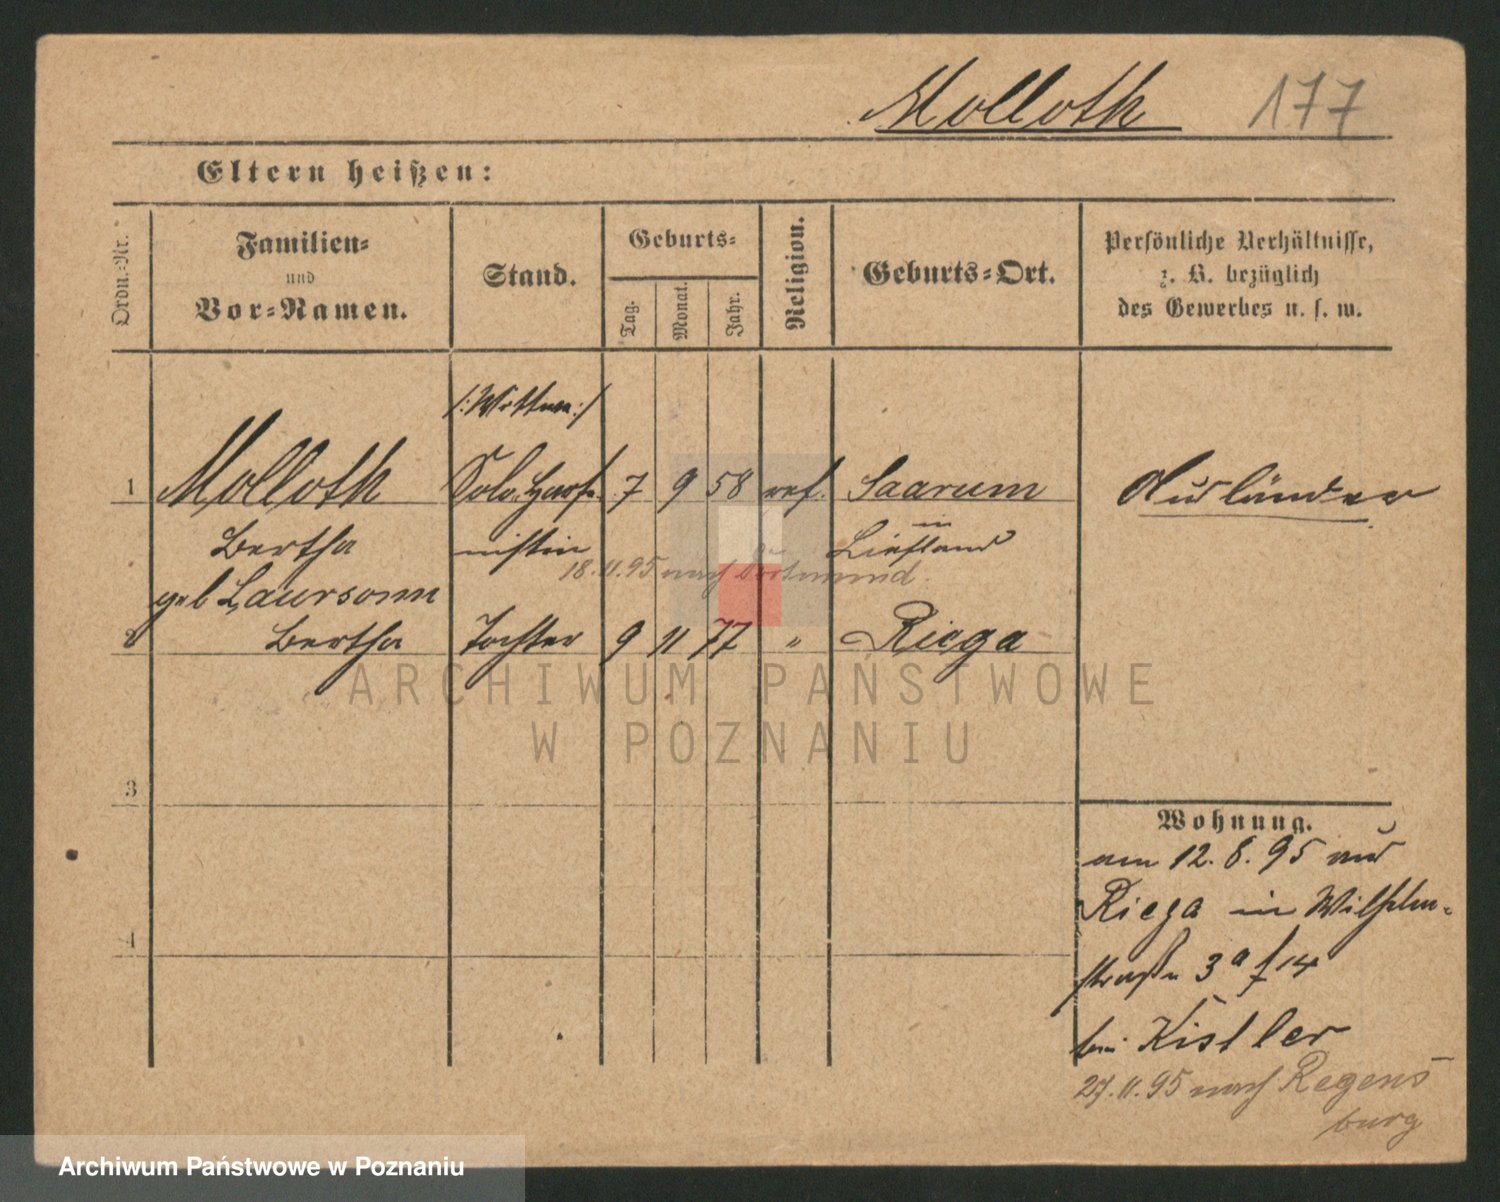 Molloth 177
Eltern heißen:
Ordn.-Nr.
Familien-
und
Vor-Namen.
Stand.
Geburts-
Tag.
Monat.
Jahr.
Religion.
Geburts-Ort.
Persönliche Verhältnisse,
z. B. bezüglich
des Gewerbes u. s. w.
/:Wittwe:/
1 Molloth 7 9 58 ref. Saarum Ausländer
Bertha in Liefland
geb Laursonn
18.11.95 nach Dortmund.
2 Bertha Tochter 9 11 77 " Riega
3
4
Wohnung.
am 12. 8. 95 aus
Riega in Wilhelm-
straße 3a
bei Kistler
27.11.95 nach Regens
burg
ARCHIWUM PAŃSTWOWE
W POZNANIU
Archiwum Państwowe w Poznaniu